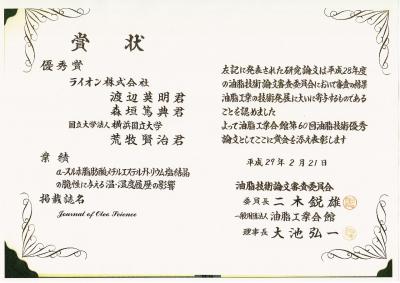 賞状
優秀賞
ライオン株式会社
渡辺英明君
森垣篤典君
国立大学法人 横浜国立大学
荒牧賢治君
業績
α-スルホ脂肪酸メチルエステルナトリウム塩結晶
の脆性に与える温・湿度履歴の影響
掲載誌名
Journal of Oleo Science
左記に発表された研究論文は平成28年度
の油脂技術論文審査委員会において審査の結果
油脂工業の技術発展に大いに寄与するものである
ことを認めました
よって油脂工業会館第60回油脂技術優秀
論文としてここに賞金を添え表彰します
平成29年2月21日
油脂技術論文審査委員会
委員長 二木鋭雄
一般財団法人 油脂工業会館
理事長 大池弘一